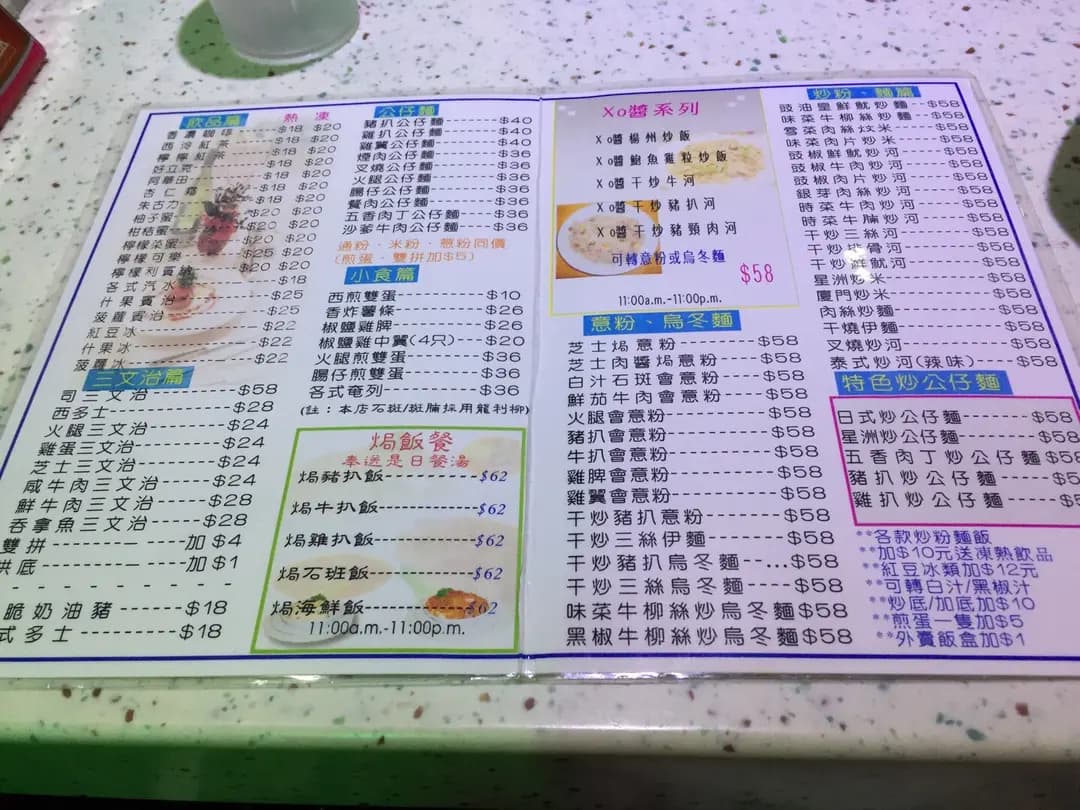 飲品篇 熱 凍
香濃咖啡------$18 $20
西冷紅茶------$18 $20
檸檬紅茶------$18 $20
好立克------$18 $20
阿華田------$18 $20
杏仁霜------$18 $20
朱古力------$18 $20
柚子蜜------$20 $20
柑桔蜜------$20 $20
檸檬菜蜜------$20 $20
檸檬可樂------$25 $20
檸檬利賓納------$20 $20
各式汽水------$18
什果賓治------$25
菠蘿賓治------$25
紅豆冰------$22
什果冰------$22
菠蘿冰------$22
三文治篇
司三文治------$58
西多士------$28
火腿三文治------$24
雞蛋三文治------$24
芝士三文治------$24
咸牛肉三文治------$24
鮮牛肉三文治------$28
吞拿魚三文治------$28
雙拼------加 $4
烘底------加 $1
脆奶油豬------$18
式多士------$18
公仔麵
豬扒公仔麵------$40
雞扒公仔麵------$40
雞翼公仔麵------$40
煙肉公仔麵------$36
叉燒公仔麵------$36
火腿公仔麵------$36
腸仔公仔麵------$36
餐肉公仔麵------$36
五香肉丁公仔麵------$36
沙爹牛肉公仔麵------$36
通粉、米粉、意粉同價
(煎蛋、雙拼加$5)
小食篇
西煎雙蛋------$10
香炸薯條------$26
椒鹽雞脾------$26
椒鹽雞中翼(4只)------$20
火腿煎雙蛋------$36
腸仔煎雙蛋------$36
各式奄列------$36
(註：本店石斑/斑腩採用龍利柳)
焗飯餐
奉送是日餐湯
焗豬扒飯------$62
焗牛扒飯------$62
焗雞扒飯------$62
焗石班飯------$62
焗海鮮飯------$62
11:00a.m.-11:00p.m.
Xo醬系列
Xo醬楊州炒飯
Xo醬鮑魚雞粒炒飯
Xo醬干炒牛河
Xo醬干炒豬扒河
Xo醬干炒豬頸肉河
可轉意粉或烏冬麵
$58
11:00a.m.-11:00p.m.
意粉、烏冬麵
芝士焗意粉------$58
芝士肉醬焗意粉------$58
白汁石斑會意粉------$58
鮮茄牛肉會意粉------$58
火腿會意粉------$58
豬扒會意粉------$58
牛扒會意粉------$58
雞脾會意粉------$58
雞翼會意粉------$58
干炒豬扒意粉------$58
干炒三絲伊麵------$58
干炒豬扒烏冬麵--...$58
干炒三絲烏冬麵------$58
味菜牛柳絲炒烏冬麵$58
黑椒牛柳絲炒烏冬麵$58
炒粉、麵篇
豉油皇鮮魷炒麵--$58
味菜牛柳絲炒麵--$58
雪菜肉絲炆米----$58
味菜肉片炒米----$58
豉椒鮮魷炒河----$58
豉椒牛肉炒河----$58
豉椒肉片炒河----$58
銀芽肉絲炒河----$58
時菜牛肉炒河----$58
時菜牛腩炒河----$58
干炒三絲河------$58
干炒排骨河------$58
干炒鮮魷河------$58
星洲炒米------$58
廈門炒米------$58
肉絲炒麵------$58
干燒伊麵------$58
叉燒炒河------$58
泰式炒河(辣味)---$58
特色炒公仔麵
日式炒公仔麵------$58
星洲炒公仔麵------$58
五香肉丁炒公仔麵$58
豬扒炒公仔麵----$5
雞扒炒公仔麵----$5
**各款炒粉麵飯
**加$10元送凍熱飲品
**紅豆冰類加$12元
**可轉白汁/黑椒汁
**炒底/加底加$10
**煎蛋一隻加$5
**外賣飯盒加$1